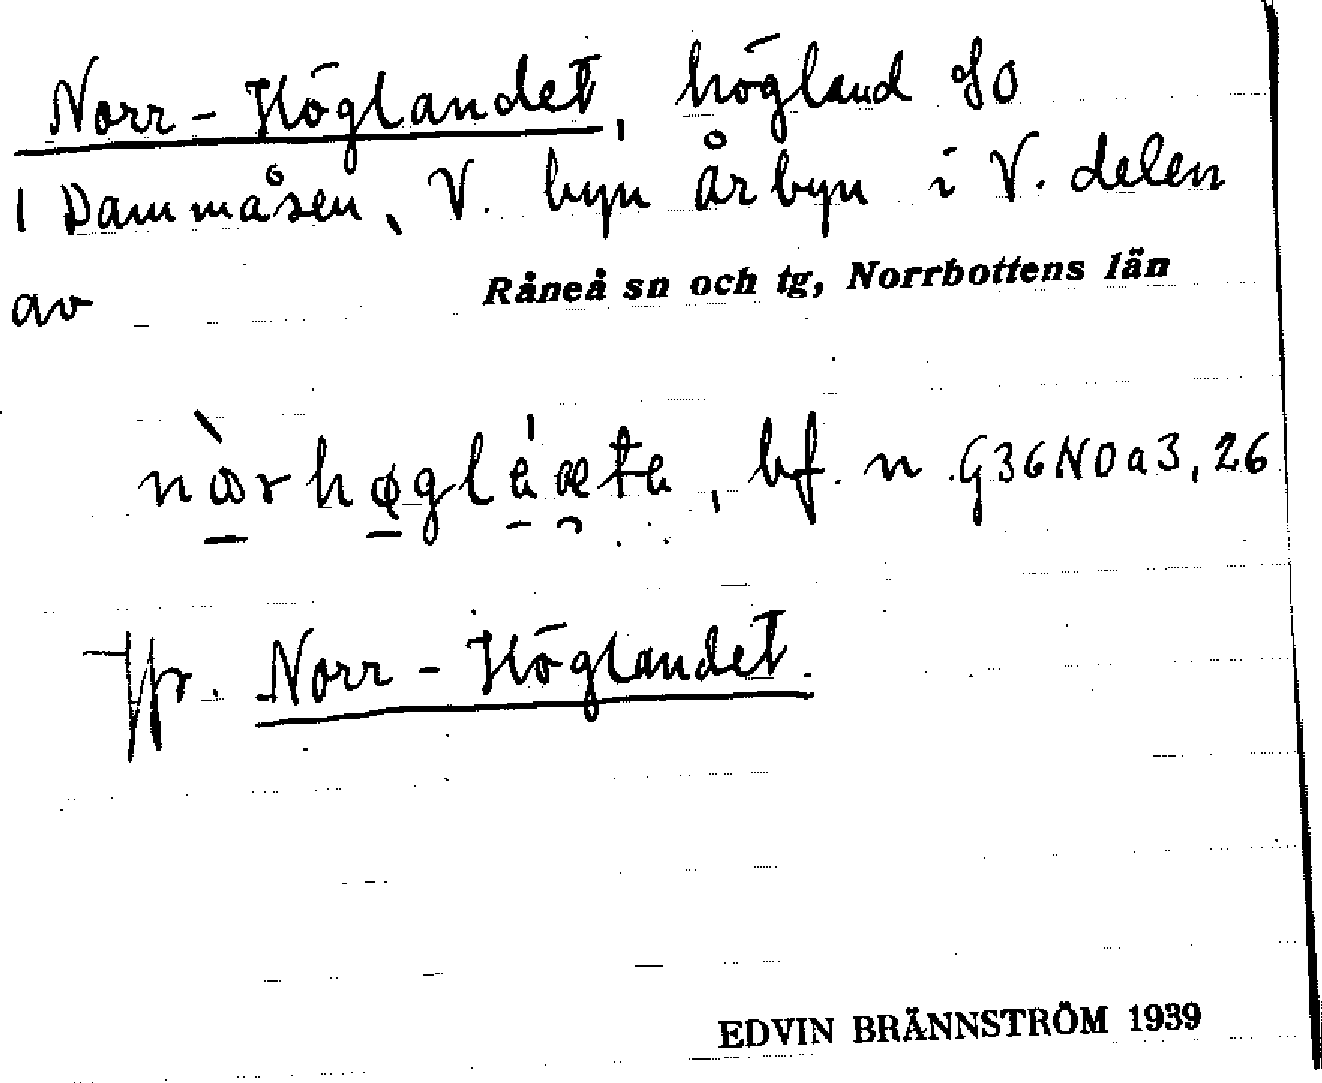 Norr-Höglandet, högland SO
i Dammåsen, V. byn Årbyn i V. delen
av Råneå sn och tg, Norrbottens län
bf. n G36NOa3,26
Norr-Höglandet.
EDVIN BRÄNNSTRÖM 1939